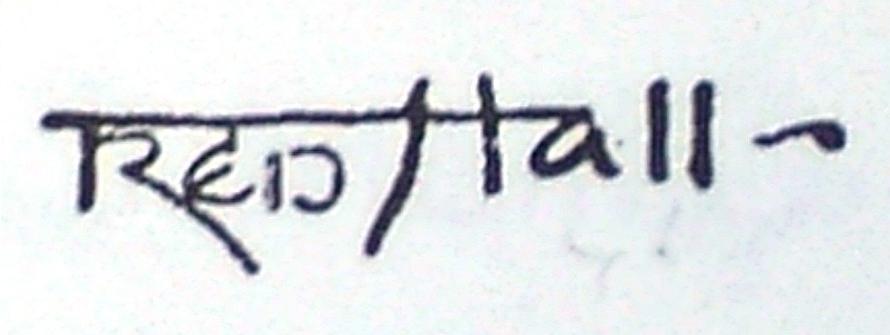 RED Hall